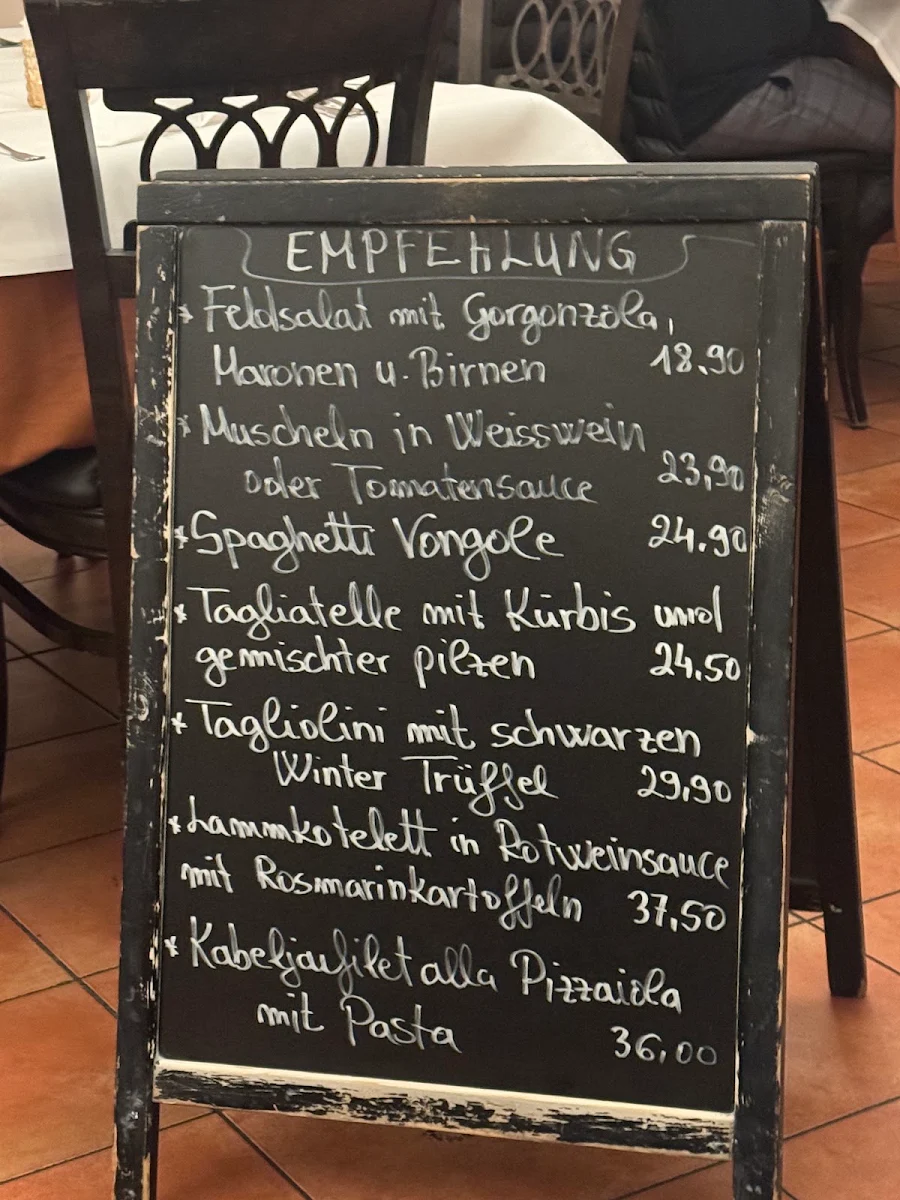 EMPFEHLUNG
* Feldsalat mit Gorgonzola,
Maronen u. Birnen 18.90
* Muscheln in Weisswein
oder Tomatensauce 23,90
* Spaghetti Vongole 24.90
* Tagliatelle mit Kürbis und
gemischter pilzen 24,50
* Tagliolini mit schwarzen
Winter Trüffel 29,90
* Lammkotelett in Rotweinsauce
mit Rosmarinkartoffeln 37,50
* Kabeljaufilet alla Pizzaiola
mit Pasta 36,00